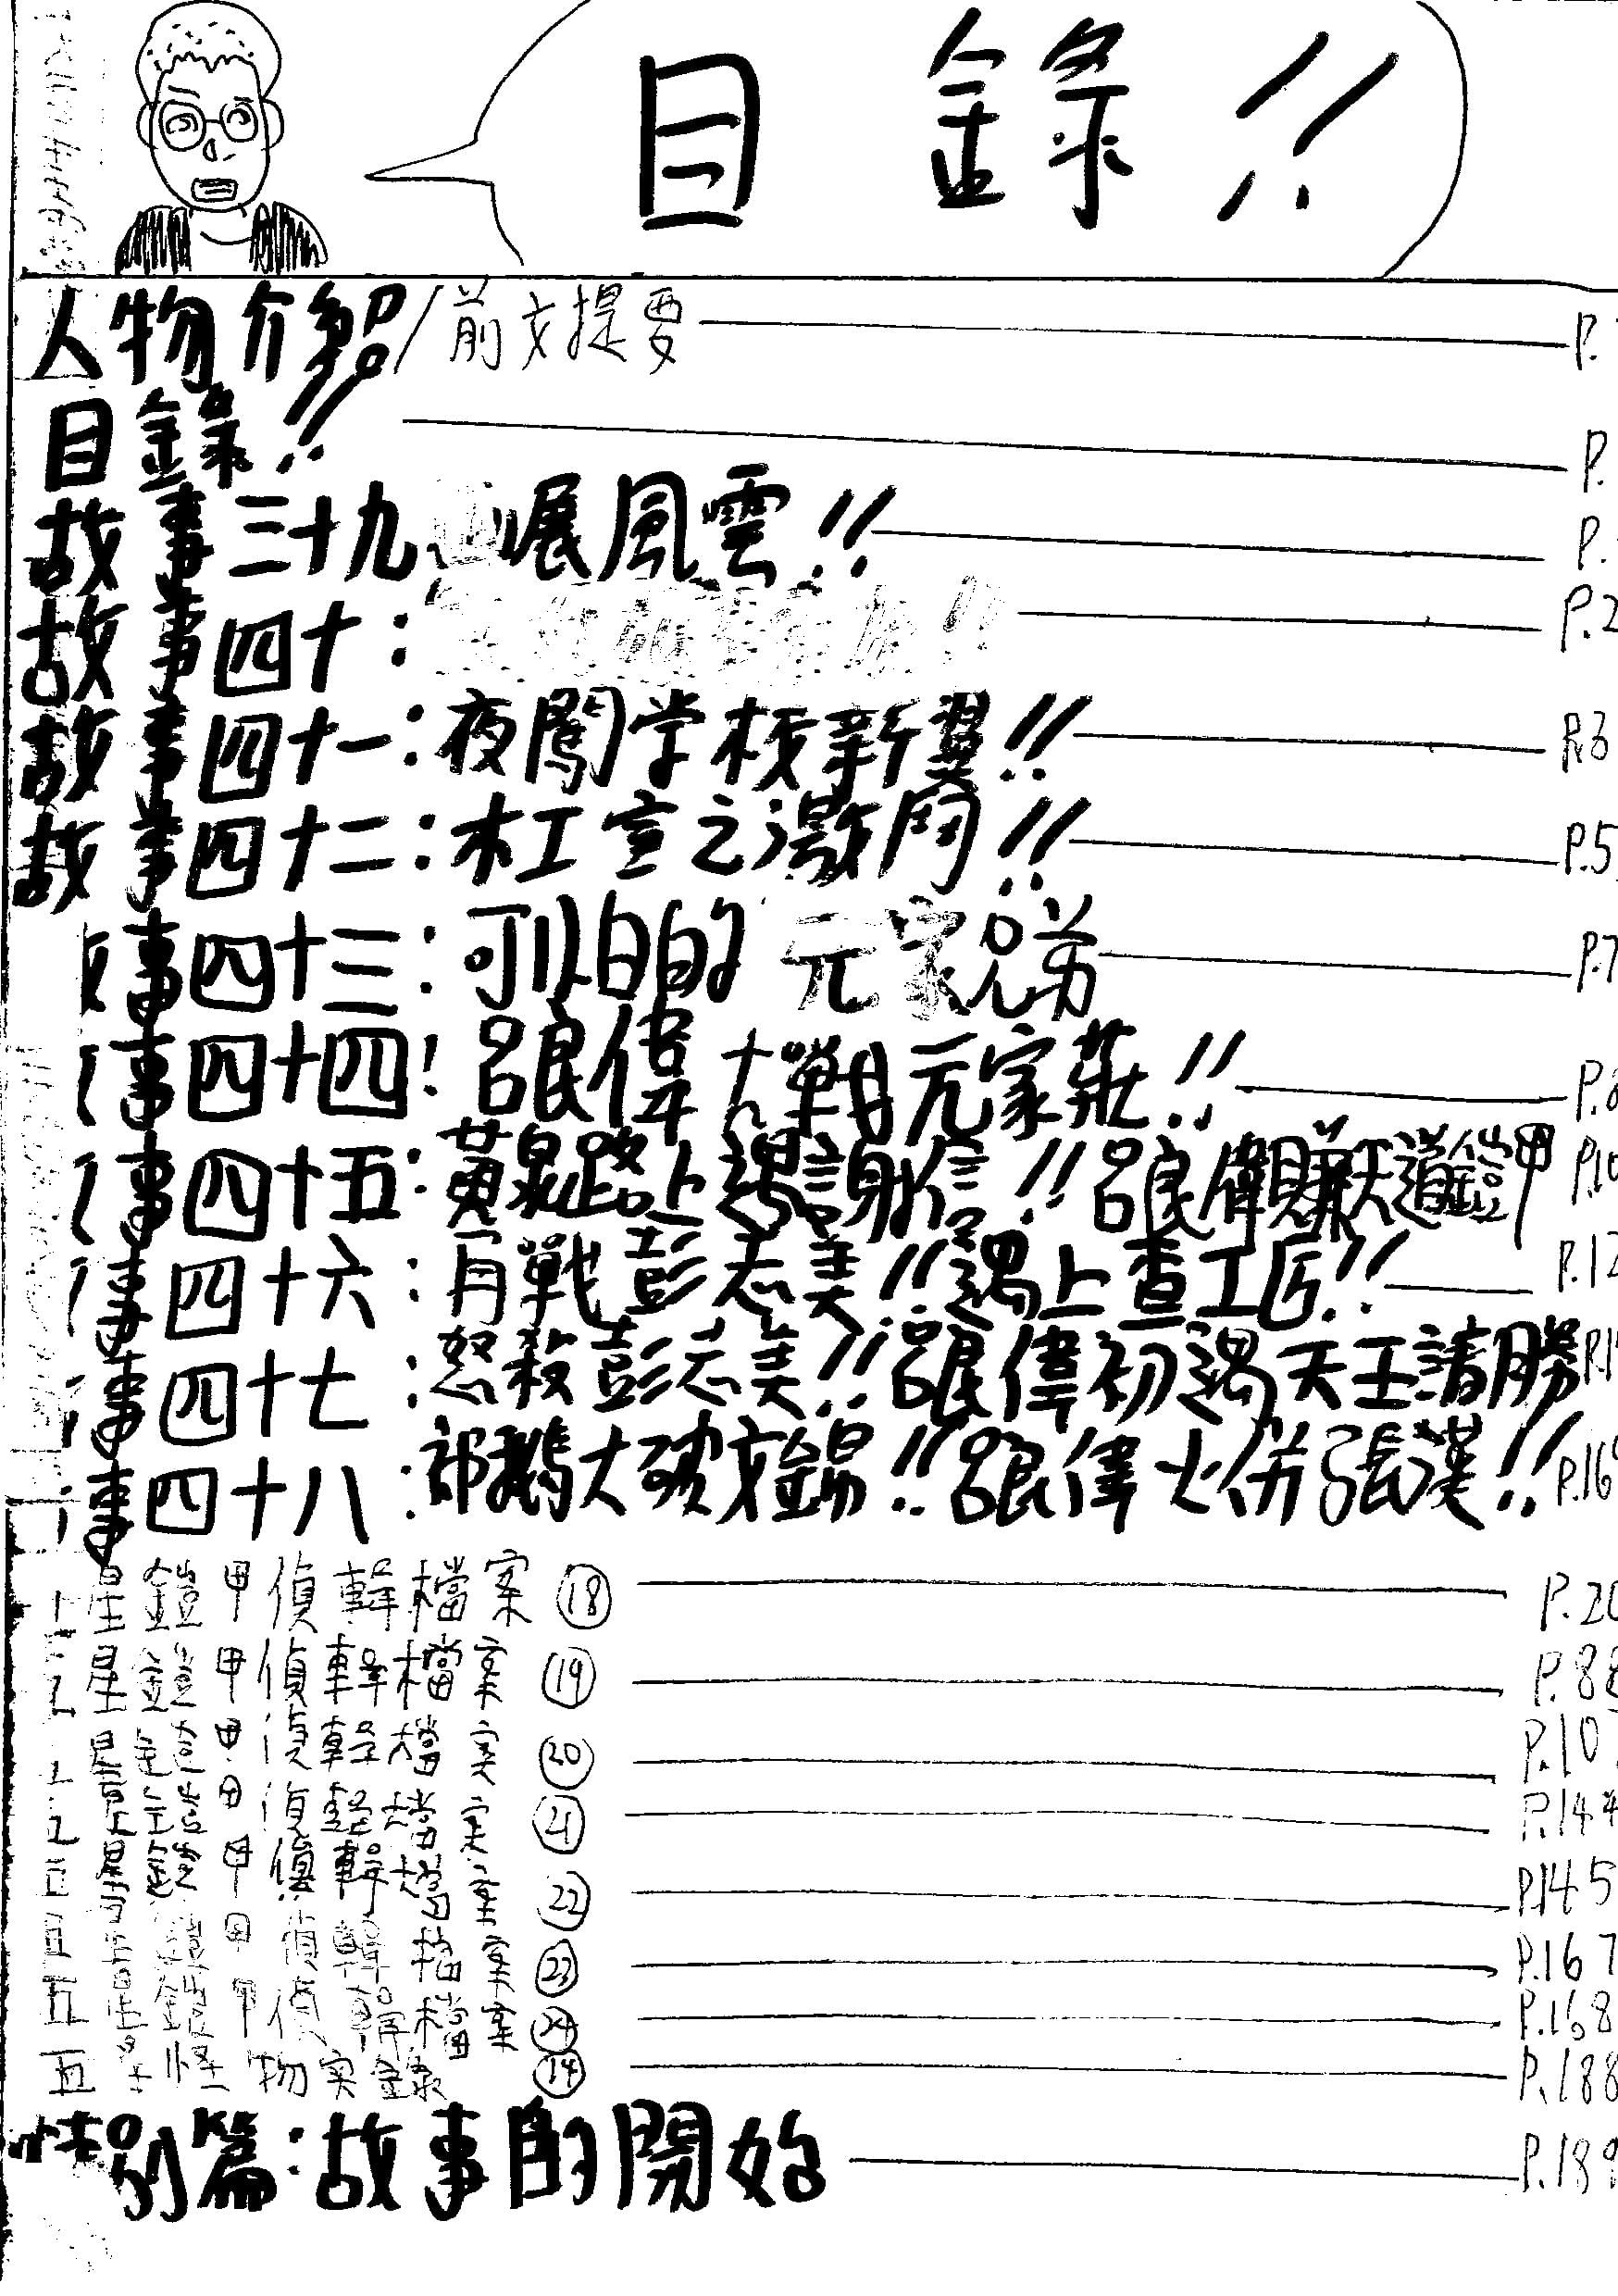 目錄!!
人物介紹/前文提要 P.
目錄!! P.
故事三十九 展風雲!! P.
故事四十: !! P.2
故事四十一:夜闖学校新翼!! P.3
故事四十二:杠宣之激鬥!! P.5
事四十三:可以白的元家兄弟 P.7
事四十四!呂良偉大戰元家莊!! P.8
事四十五:黃泉路上遇謝信!!呂良偉賺天道鎧甲 P.10
事四十六:再戰彭志美!!遇上查工厄!! P.12
事四十七:怒殺彭志美!!呂良偉初遇天王請勝 P.1
事四十八:祁鵝大破文錦!!呂良偉火併張漢!! P.16
星鎧甲偵輯檔案⑱ P.20
星鎧甲偵輯檔案⑲ P.88
星鎧甲偵輯檔案⑳ P.10
星鎧甲偵輯檔案㉑ P.144
星鎧甲偵輯檔案㉒ P.145
星鎧甲偵輯檔案㉓ P.167
星鎧甲偵輯檔案㉔ P.168
怪物实錄⑭ P.188
特別篇:故事的開始 P.189